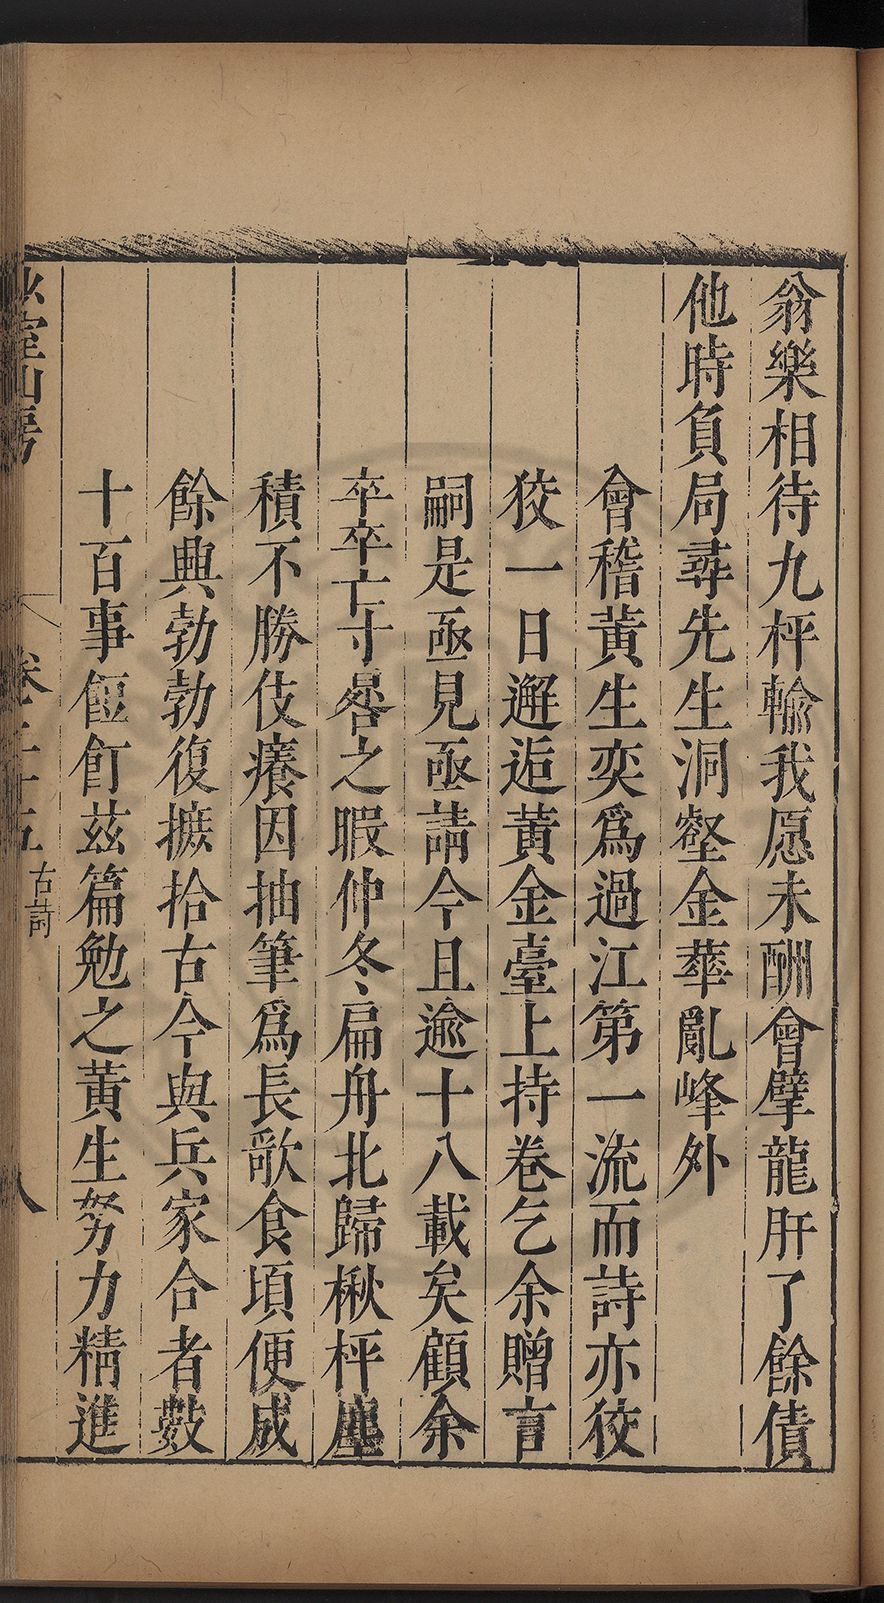 翁樂相待九枰輸我愿未酬會擘龍肝了餘債
他時負局尋先生洞壑金華亂峰外
會稽黃生奕爲過江第一流而詩亦狡
狡一日邂逅黃金臺上持卷乞余贈言
嗣是亟見亟請今且逾十八載矣顧余
卒卒亡寸晷之暇仲冬扁舟北歸楸枰塵
積不勝伎癢因抽筆爲長歌食頃便成
餘興勃勃復摭拾古今與兵家合者數
十百事餖飣茲篇勉之黃生努力精進
室山房 卷二十五 古詩 八